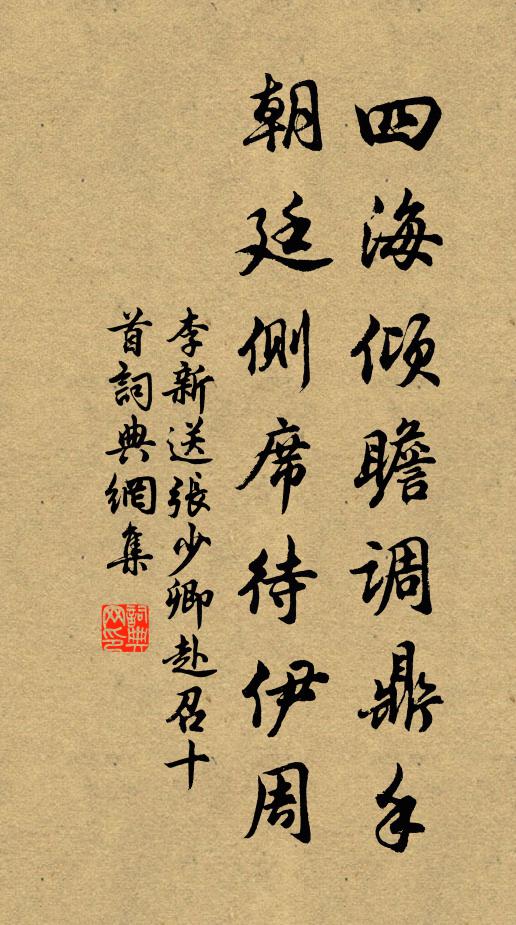 四海倾瞻调鼎手
朝廷侧席待伊周
李新送張少卿赴召十
首詞典網集
詞典
网印